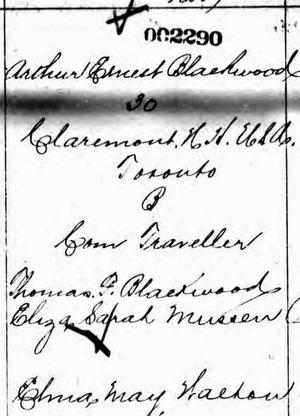 002290
Arthur Ernest Blackwood
30
Claremont, N. H. U.S.A.
Toronto
B
Com Traveller
Thomas F. Blackwood
Eliza Sarah Mussen
Edna May Walton